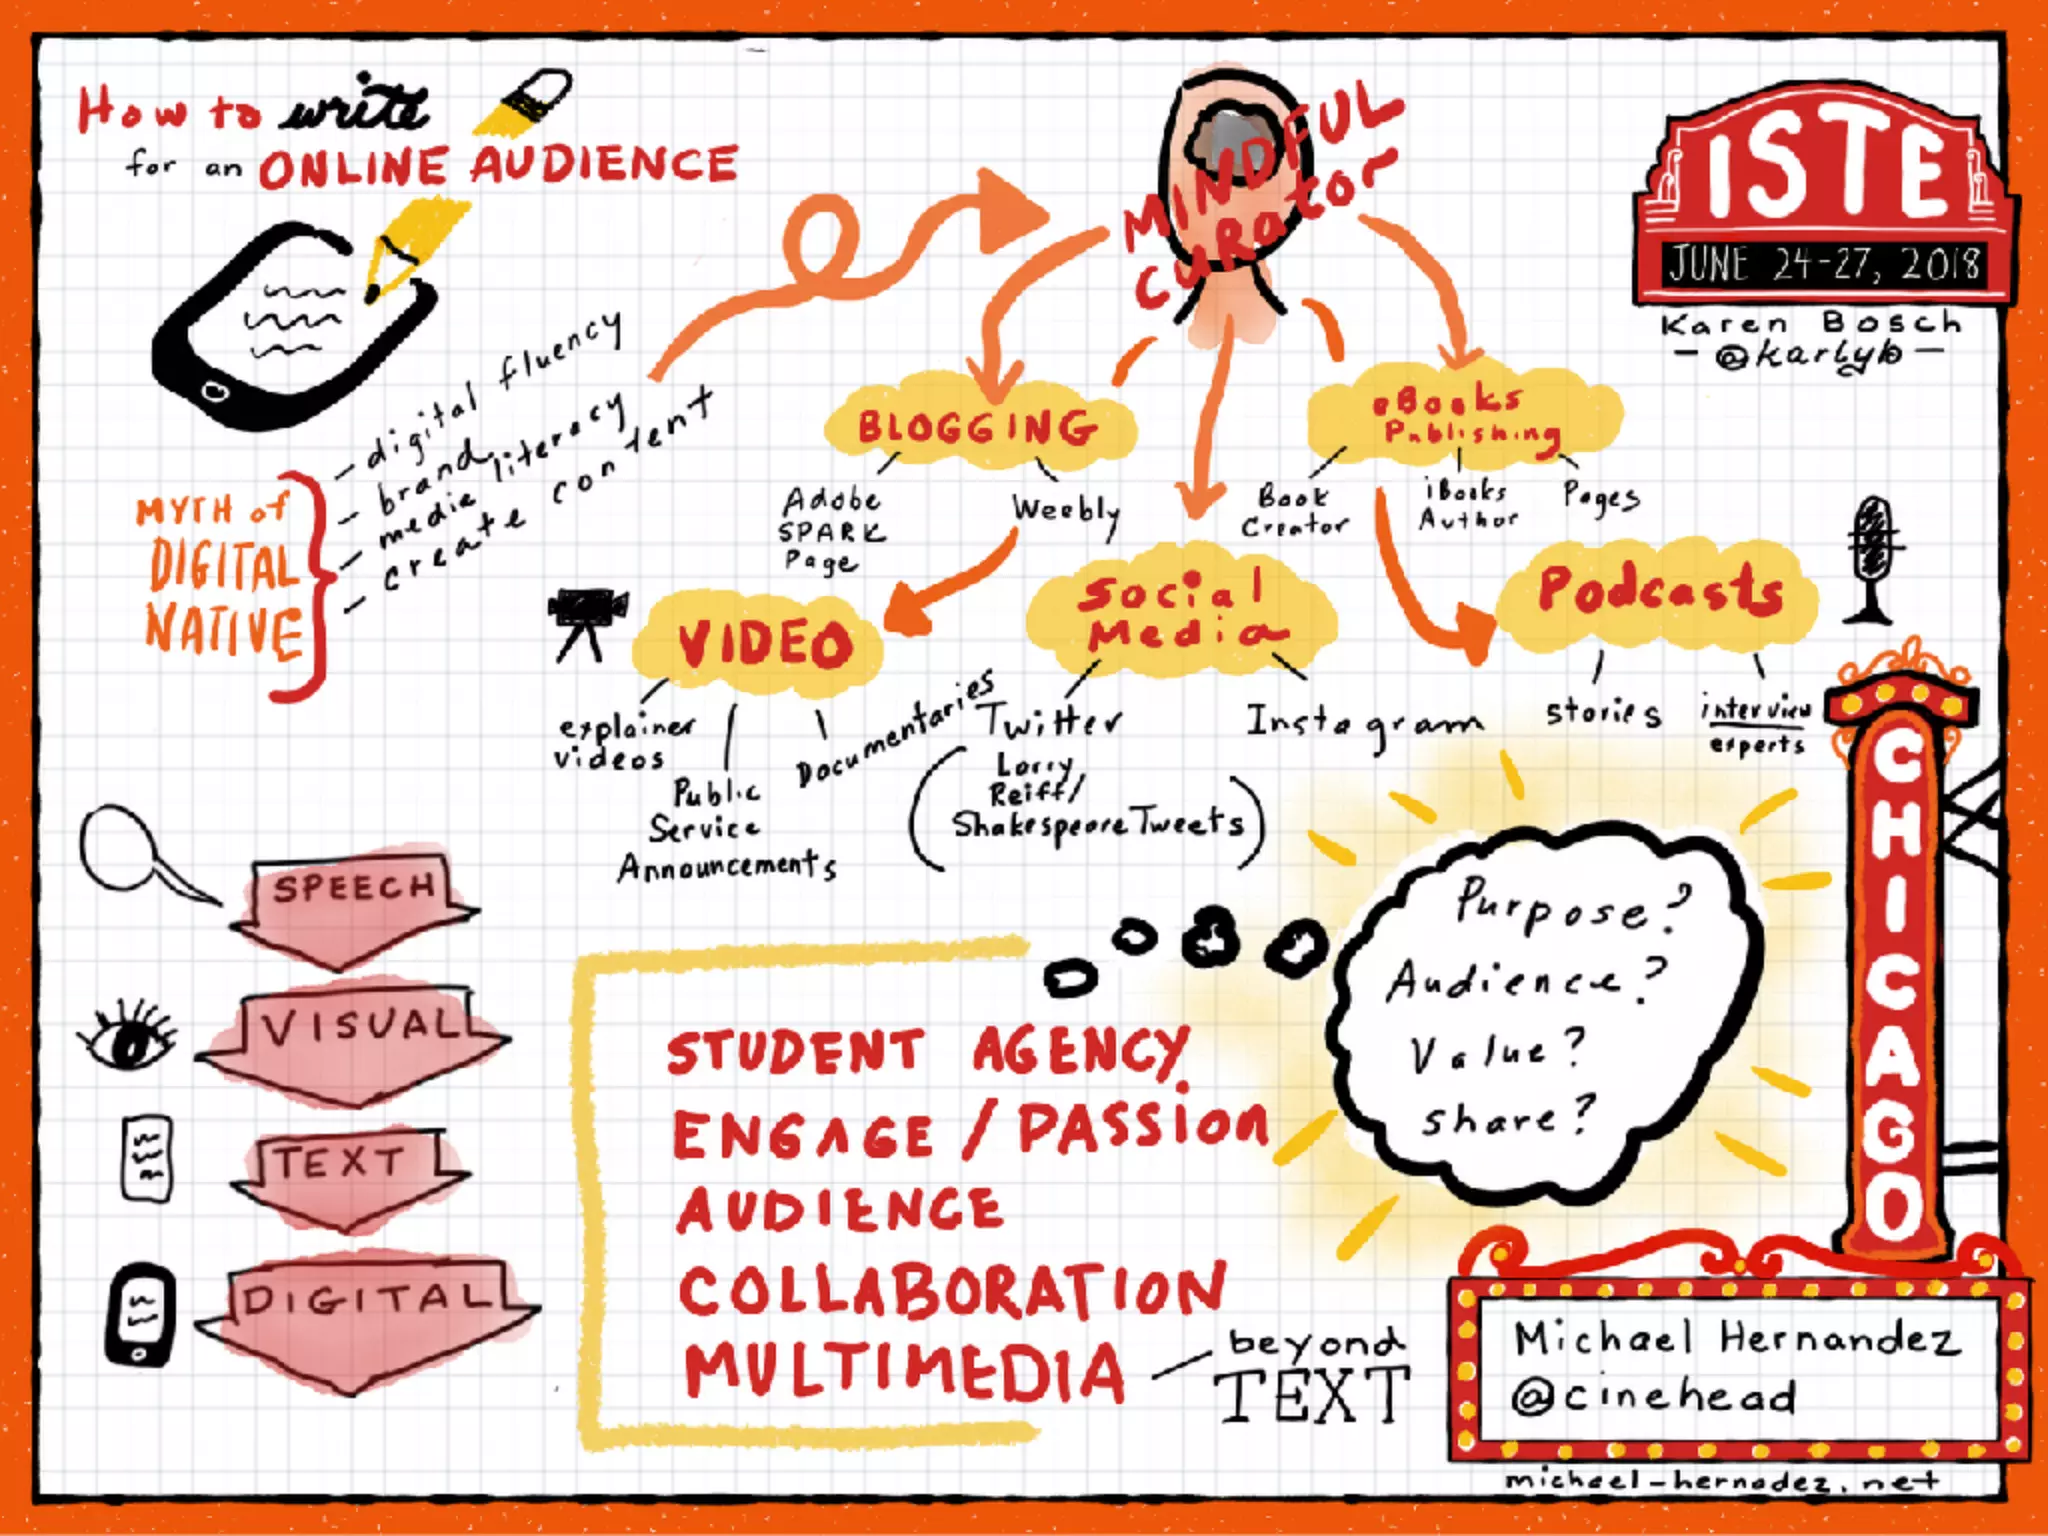 How to write
for an ONLINE AUDIENCE
MINDFUL
CURator
ISTE
JUNE 24-27, 2018
Karen Bosch
- @karlyb -
MYTH of
DIGITAL
NATIVE
- digital fluency
- brand
- media literacy
- create content
BLOGGING
Adobe
SPARK
Page
Weebly
eBooks
Publishing
Book
Creator
iBooks
Author
Pages
VIDEO
explainer
videos
Public
Service
Announcements
Documentaries
Social
Media
Twitter
(Lorry
Reiff/
ShakespeareTweets)
Instagram
Podcasts
stories
interview
experts
SPEECH
VISUAL
TEXT
DIGITAL
STUDENT AGENCY
ENGAGE / PASSion
AUDIENCE
COLLABORATION
MULTIMEDIA - beyond
TEXT
Purpose?
Audience?
Value?
share?
CHICAGO
Michael Hernandez
@cinehead
michael-hernadez.net